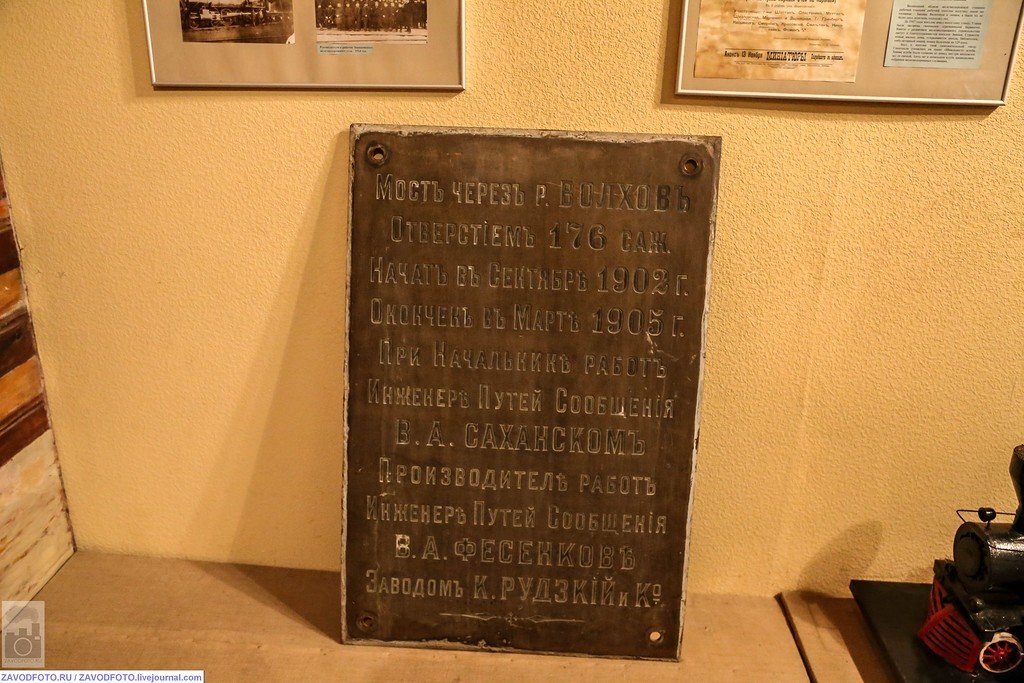 Мостъ черезъ р. ВОЛХОВЪ
Отверстіемъ 176 саж.
Начатъ въ Сентябрѣ 1902 г.
Окончен въ Мартѣ 1905 г.
При Начальникѣ работъ
Инженерѣ Путей Сообщенія
В. А. САХАНСКОМЪ
Производителѣ работъ
Инженерѣ Путей Сообщенія
В. А. ФЕСЕНКОВѢ
Заводомъ К. РУДЗКІЙ и Кº
МИНІАТЮРЫ
ZAVODFOTO.RU / ZAVODFOTO.livejournal.com